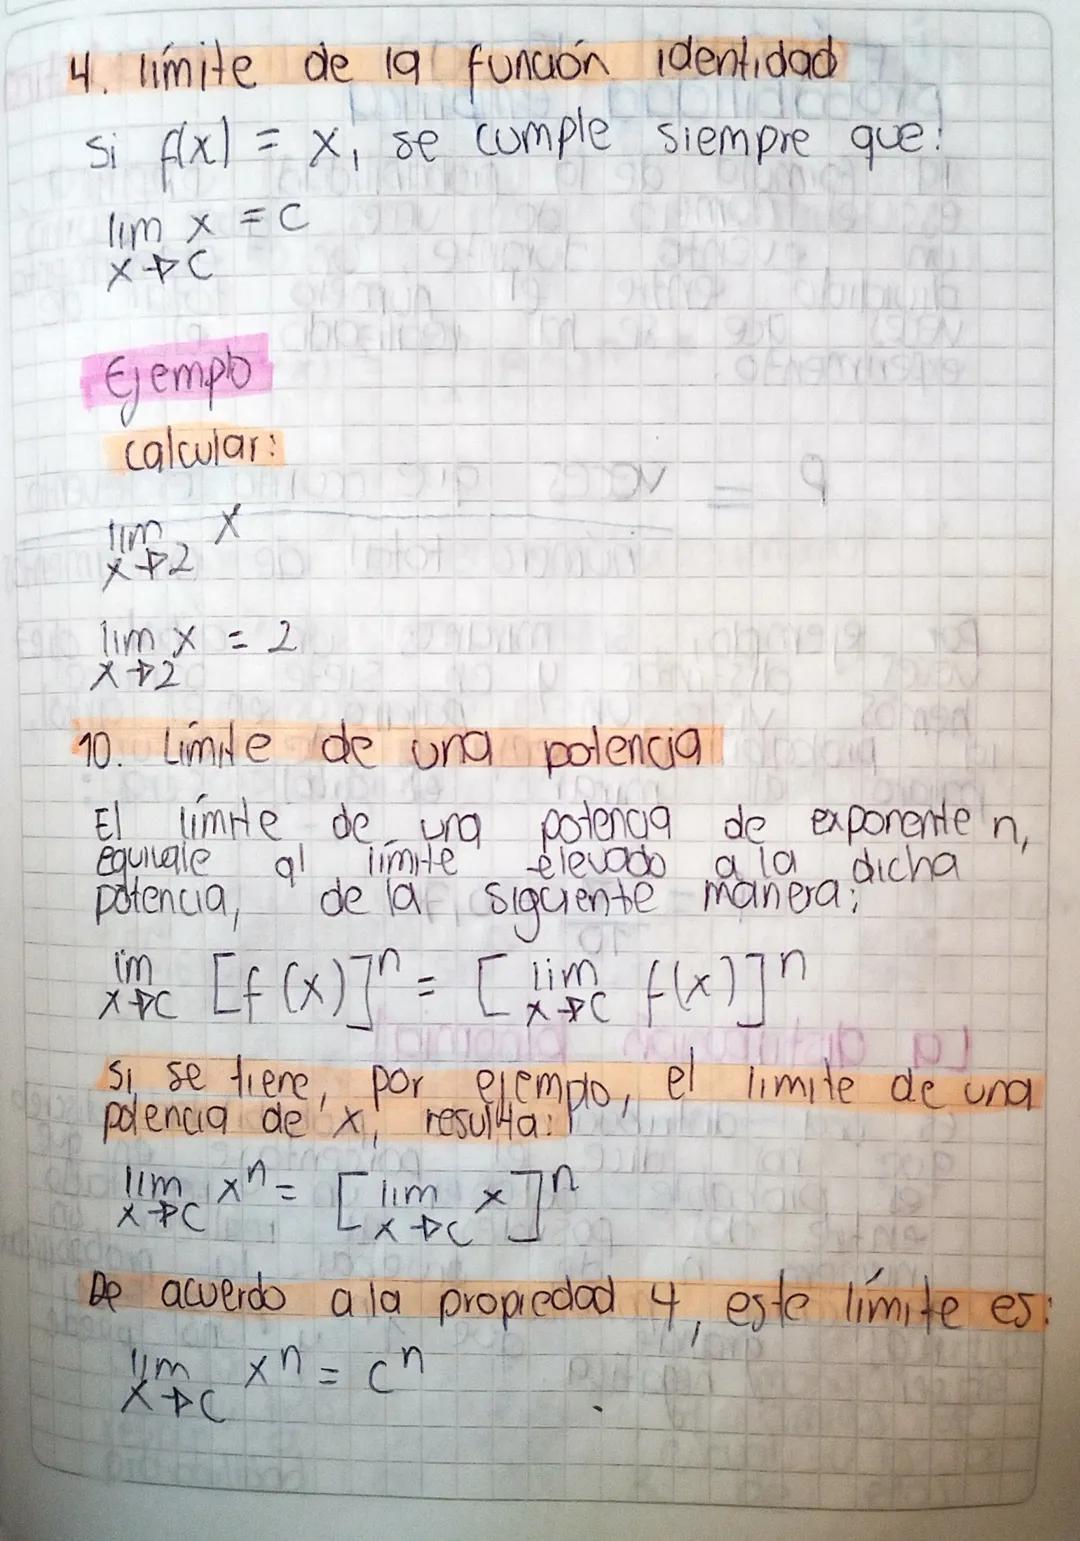 4. límite de la función identidad
si f(x) = x, se cumple siempre que:
lim x = c
x→c
Ejemplo
calcular:
lim x
x→2
lim x = 2
x→2
10. Límite de una potencia
El límite de una potencia de exponente n,
equivale al límite elevado a la dicha
potencia, de la siguiente manera:
im [f(x)]ⁿ = [lim f(x)]ⁿ
x→c x→c
si se tiene, por ejemplo, el limite de una
potencia de x, resulta:
lim xⁿ = [lim x]ⁿ
x→c x→c
De acuerdo a la propiedad 4, este límite es:
lim xⁿ = cⁿ
x→c